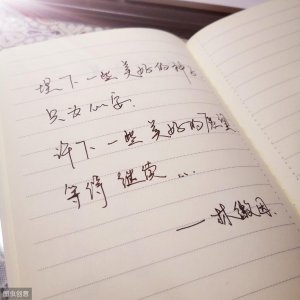 埋下一些美好的种子
只为心安.
许下一些美好的愿望
等待
—林徽因.
图虫创意